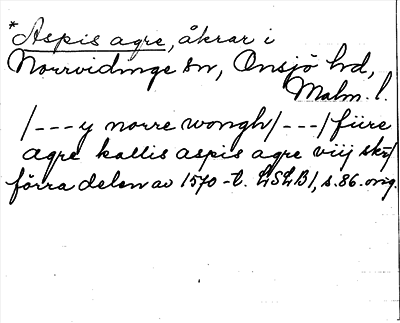 *Aspis agre, åkrar i
Norrvidinge sn, Onsjö hd,
Malm. l.
/---y norre wongh/---/fiire
agre kallis aspis agre viij skr/
förra delen av 1570-t. LSLB1, s. 86. orig.